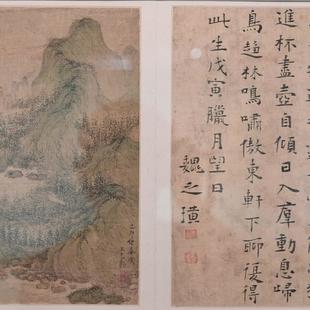 進杯盡壺自傾日入羣動息歸
鳥趨林鳴嘯傲東軒下聊復得
此生戊寅臘月望日
魏之璜